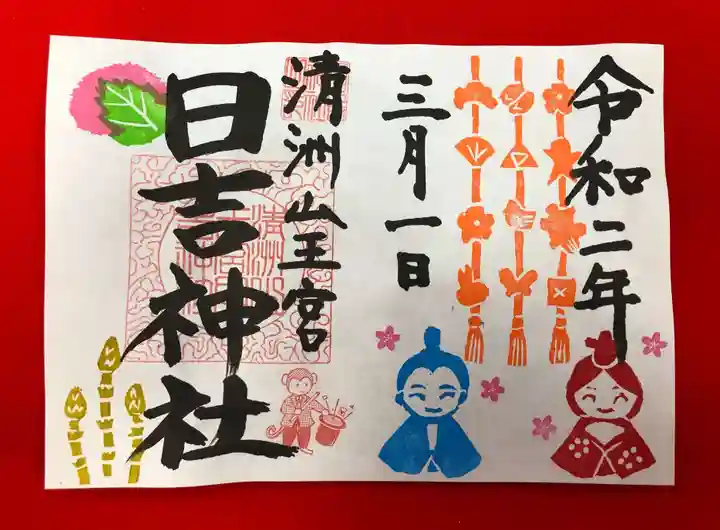 令和二年
三月一日
清洲山王宮
日吉神社